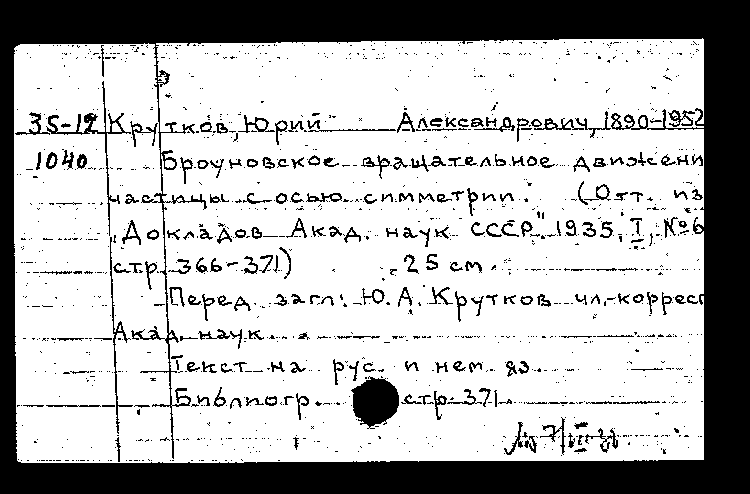 35-12 Крутков, Юрий Александрович, 1890-1952
1040 Броуновское вращательное движени
частицы с осью симметрии. (Отт. из
„Докладов Акад. наук СССР". 1935, I, №6
стр. 366-371) 25 см.
Перед загл: Ю.А. Крутков чл.-корресп
Акад. наук.
Текст на рус. и нем. яз.
Библиогр. стр. 371.